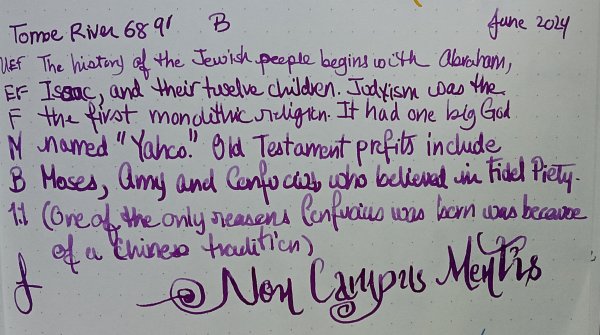 Tomoe River 68 g/ B June 2024
UEF The history of the Jewish people begins with Abraham,
EF Issac, and their twelve children. Judyism was the
F the first monolithic religion. It had one big God
M named "Yahoo." Old Testament profits include
B Moses, Amy and Confucius, who believed in Fidel Piety.
1.1 (One of the only reasons Confucius was born was because
of a Chinese tradition)
f Non Campus Mentis